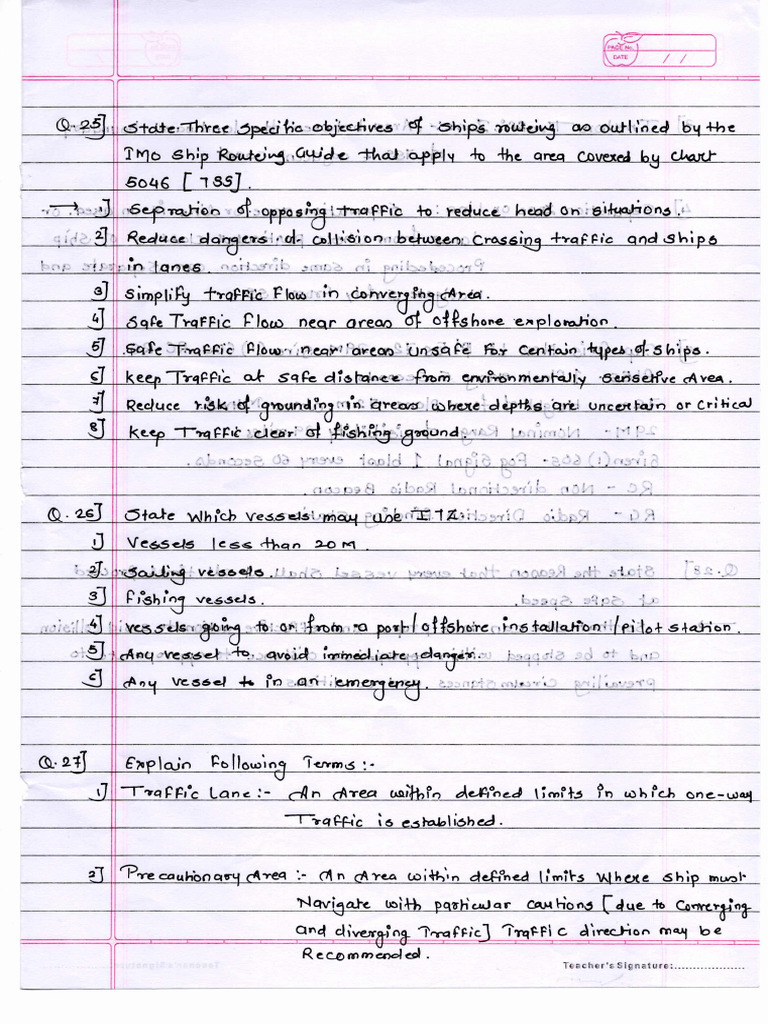 PAGE No.
DATE / /
Q.25] State Three Specific objectives of ships routeing as outlined by the
IMO Ship Routeing Guide that apply to the area covered by chart
5046 [TSS].
→ 1] Sepration of opposing traffic to reduce head on situations.
2] Reduce dangers of collision between crossing traffic and ships
in lanes
3] Simplify traffic flow in converging Area.
4] Safe Traffic flow near areas of offshore exploration.
5] Safe Traffic flow near areas unsafe for centain types of ships.
6] keep Traffic at safe distance from environmentally sensetive Area.
7] Reduce risk of grounding in areas where depths are uncertain or critical
8] keep Traffic clear of fishing ground.
Q.26] State which vessels may use ITZ.
1] Vessels less than 20 M.
2] Sailing vessels.
3] Fishing vessels.
4] vessels going to or from a port/offshore installation/pilot station.
5] Any vessel to avoid immediate danger.
6] Any vessel to in an emergency.
Q.27] Explain Following Terms:-
1] Traffic Lane:- An Area within defined limits in which one-way
Traffic is established.
2] Precautionary Area:- An Area within defined limits where ship must
Navigate with particular cautions [due to converging
and diverging Traffic] Traffic direction may be
Recommended.
Teacher's Signature:....................